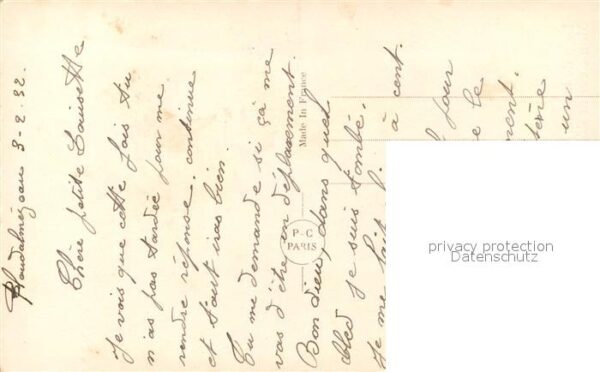 Ploudalmézeau 3-2-32.
Chère petite Louisette
Je vois que cette fois tu
n'as pas tardée pour me
rendre réponse. continue
et tout iras bien.
Tu me demande si ça me
vas d'être en déplacement.
Bon dieu, dans quel
bled je suis tombé.
Je me
à cent.
jour
le
un
Made in France
P-C
PARIS
privacy protection
Datenschutz